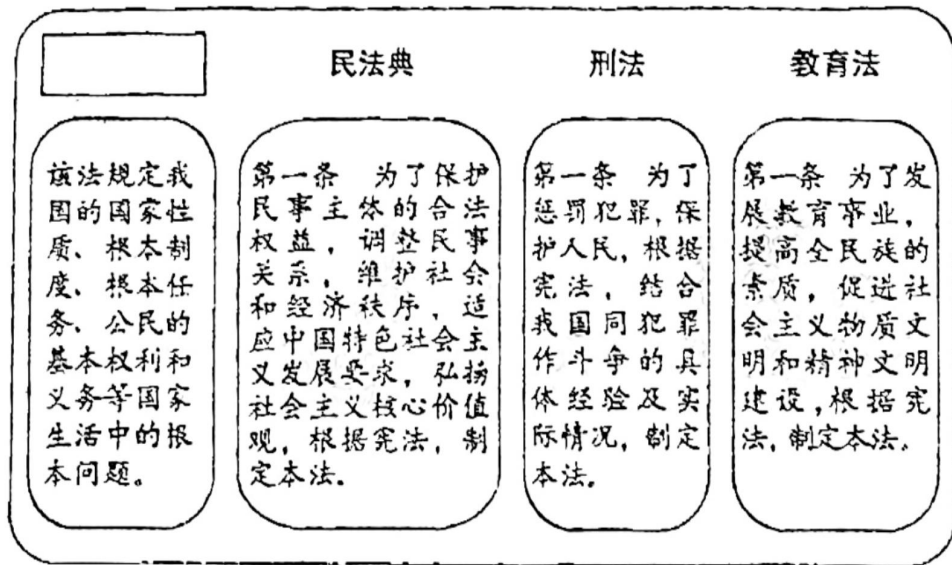 民法典
刑法
教育法
该法规定我
国的国家性
质、根本制
度、根本任
务、公民的
基本权利和
义务等国家
生活中的根
本问题。
第一条 为了保护
民事主体的合法
权益，调整民事
关系，维护社会
和经济秩序，适
应中国特色社会主
义发展要求，弘扬
社会主义核心价值
观，根据宪法，制
定本法。
第一条 为了
惩罚犯罪，保
护人民，根据
宪法，结合
我国同犯罪
作斗争的具
体经验及实
际情况，制定
本法。
第一条 为了发
展教育事业，
提高全民族的
素质，促进社
会主义物质文
明和精神文明
建设，根据宪
法，制定本法。